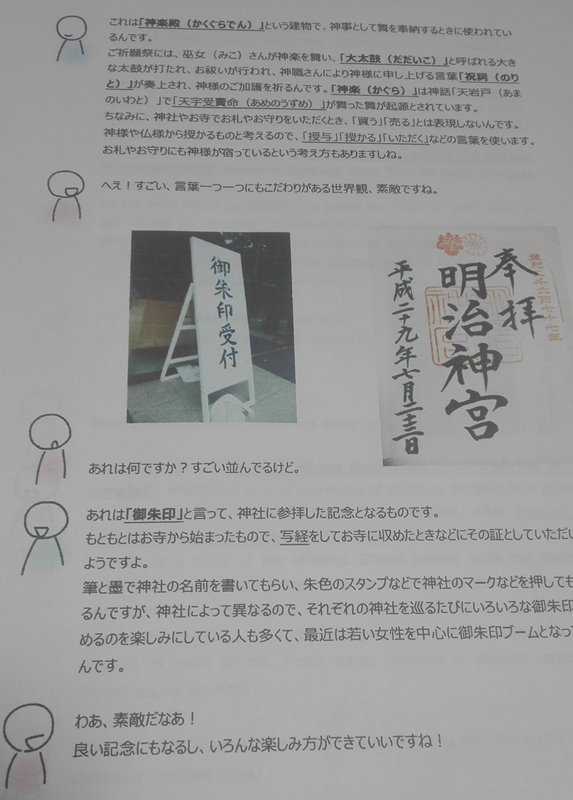 これは「神楽殿（かぐらでん）」という建物で、神事として舞を奉納するときに使われてい
るんです。
ご祈願祭には、巫女（みこ）さんが神楽を舞い、「大太鼓（だだいこ）」と呼ばれる大き
な太鼓が打たれ、お祓いが行われ、神職さんにより神様に申し上げる言葉「祝詞（のり
と）」が奏上され、神様のご加護を祈るんです。「神楽（かぐら）」は神話「天岩戸（あま
のいわと）」で「天宇受賣命（あめのうずめ）」が舞った舞が起源とされています。
ちなみに、神社やお寺でお札やお守りをいただくとき、「買う」「売る」とは表現しないんです。
神様や仏様から授かるものと考えるので、「授与」「授かる」「いただく」などの言葉を使います。
お札やお守りにも神様が宿っているという考え方もありますしね。
へえ！すごい、言葉一つ一つにもこだわりがある世界観、素敵ですね。
御朱印受付
奉拝
明治神宮
平成二十九年七月二十三日
あれは何ですか？すごい並んでるけど。
あれは「御朱印」と言って、神社に参拝した記念となるものです。
もともとはお寺から始まったもので、写経をしてお寺に収めたときなどにその証としていただい
ようですよ。
筆と墨で神社の名前を書いてもらい、朱色のスタンプなどで神社のマークなどを押しても
るんですが、神社によって異なるので、それぞれの神社を巡るたびにいろいろな御朱印
めるのを楽しみにしている人も多くて、最近は若い女性を中心に御朱印ブームとなっ
んです。
わあ、素敵だなあ！
良い記念にもなるし、いろんな楽しみ方ができていいですね！